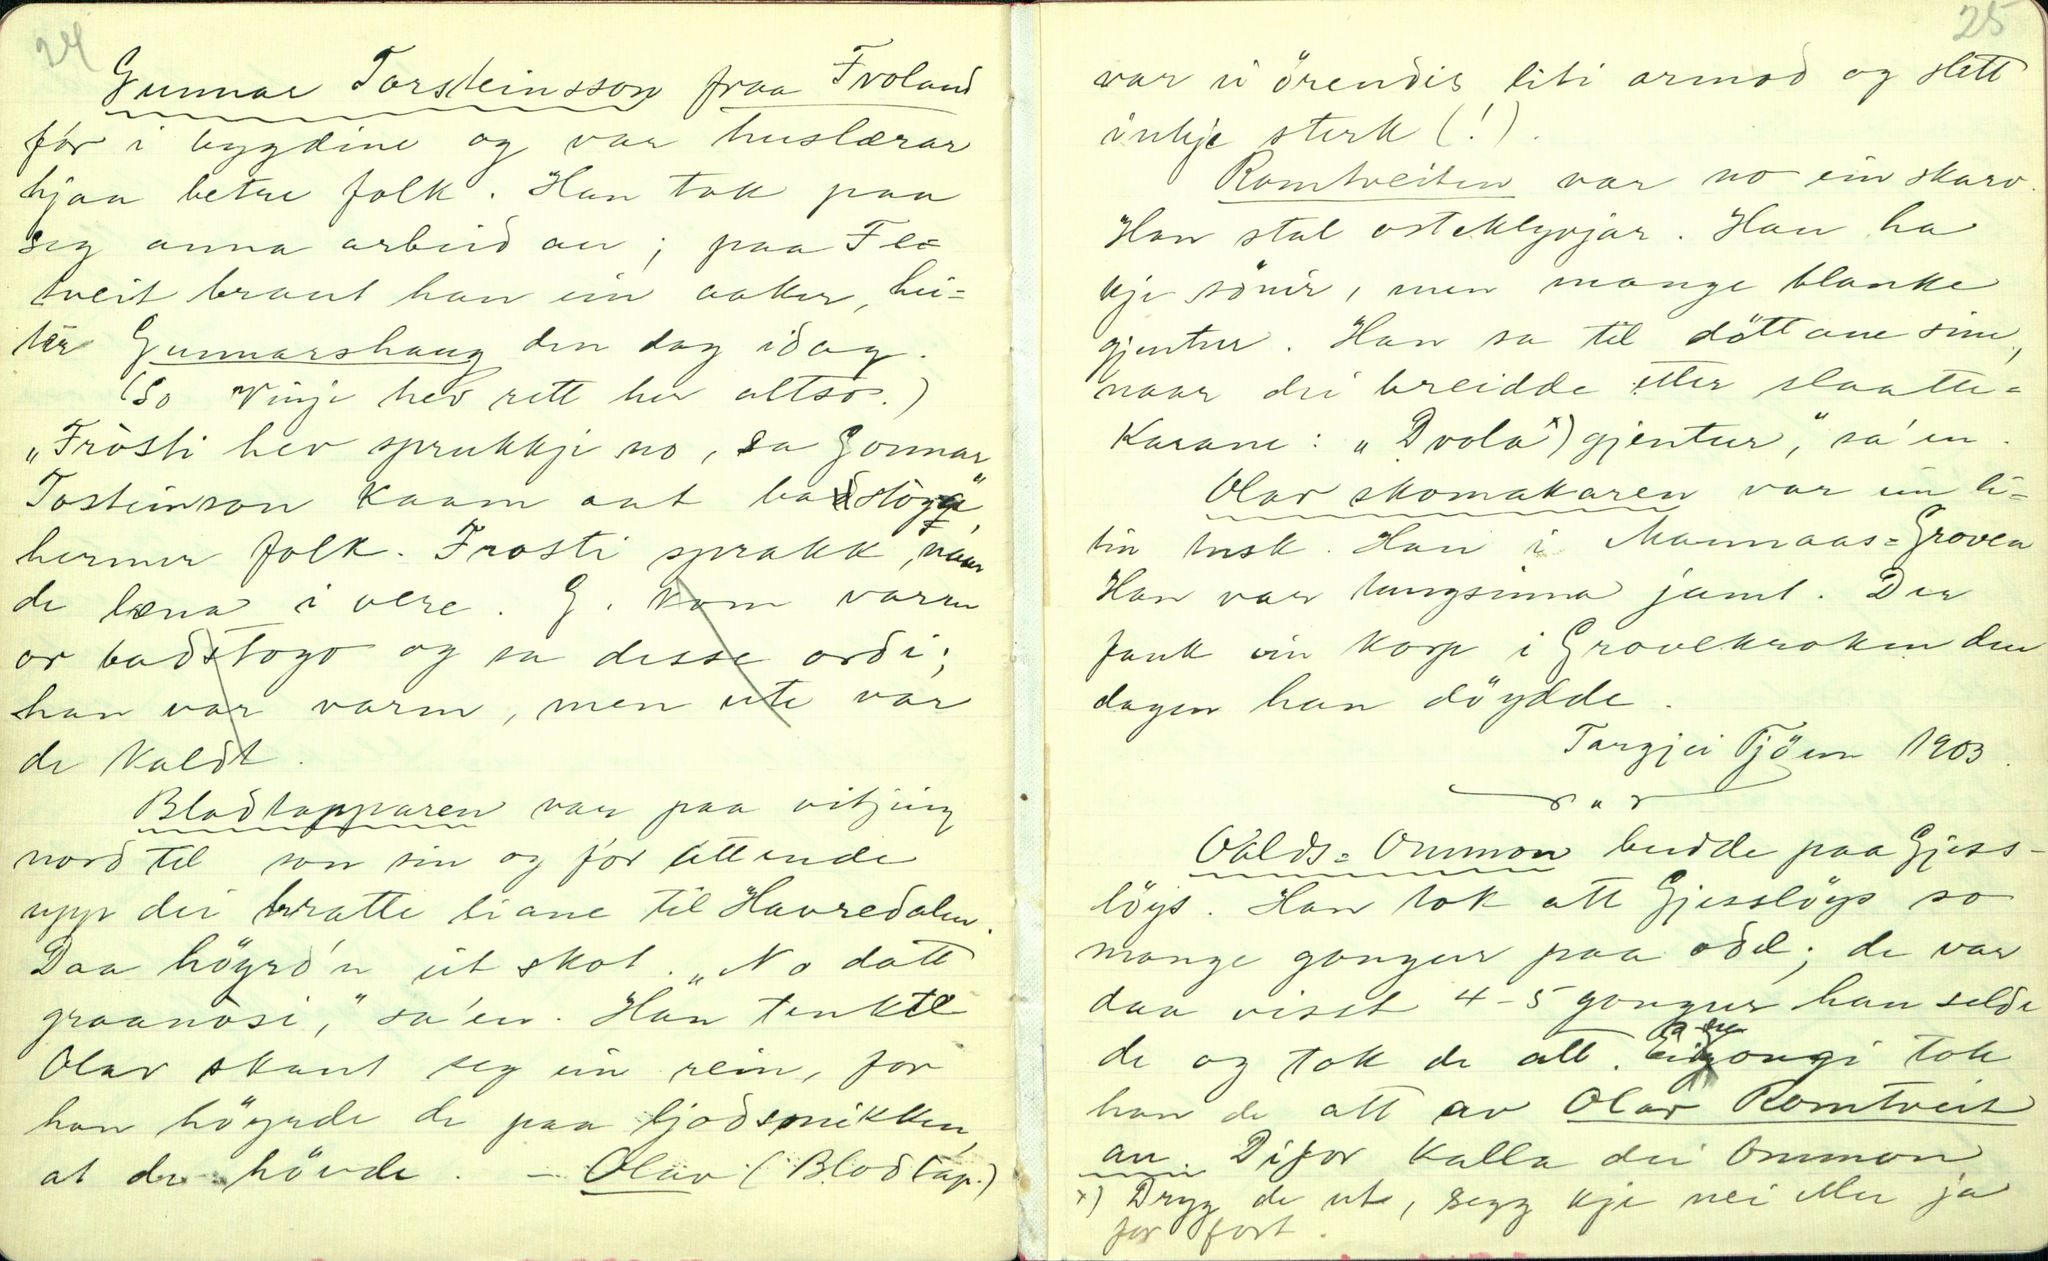 24
Gunnar Torsteinsson fraa Froland
fór i bygdine og var huslærar
hjaa betre folk. Han tok paa
seg anna arbeid au; paa Fle=
tveit braut han ein aaker, hei=
ter Gunnarshaug den dag idag.
(So Vinje hev rett her altso.)
„Fròsti hev sprukkje no, sa Gonnar
Tosteinson kaam aat badstògo",
hermer folk. Frosti sprakk, naar
de læna i vere. G. kom varm
or badstogo og sa desse ordi;
han var varm, men ute var
de kaldt.
Blodtapparen var paa vitjing
nord til son sin og fór attende
upp dei bratte liane til Havredalen.
Daa höyrd'n eit skot. „No datt
graanòsi," sa'en. Han tenkte
Olav skaut seg ein rein, for
han höyrde de paa ljodsmikken,
at de hövde. – Olav (Blodtap.)
25
var ei örendis liti armod og slett
inkje sterk (!).
Romtveiten var no ein skarv.
Han stal osteklyvjar. Han ha
kje sönir, men mange blanke
gjentur. Han sa til döttane sine,
naar dei breidde etter slaatte=
karane: „Dvola x) gjentur," sa'en.
Olav skomakaren var ein li=
tin tusk. Han i Mannaas=Groven
Han var tungsinna jamt. Der
fauk ein korp i Grovekroken den
dagen han döydde.
Targjei Tjöen 1903.
Valds=Ommon budde paa Gjess-
löys. Han tok att Gjesslöys so
mange gonger paa odel; de var
daa visst 4-5 gonger han selde
de og tok de att. gongi tok
han de att av Olav Romtveit
au. Difor kalla dei Ommon
x) Dryg de ut, segg kje nei eller ja
for fort.